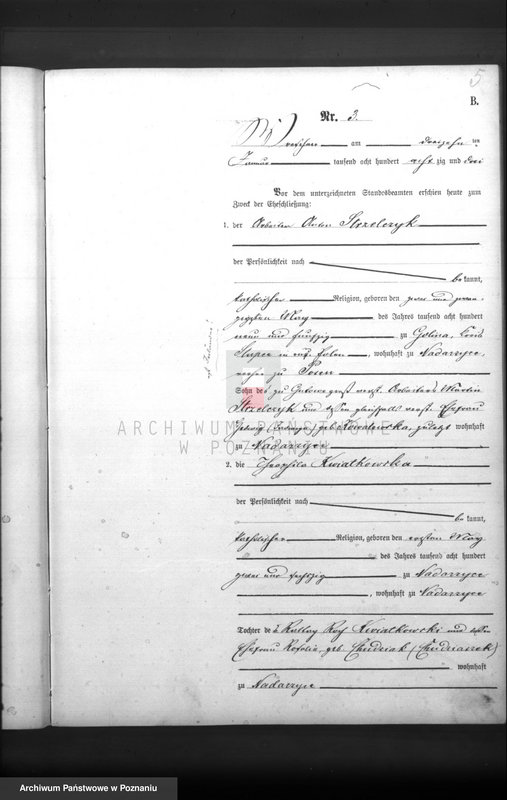 5
B.
Nr. 3.
Wreschen am dreizehn ten
Januar tausend acht hundert achtzig und drei
Vor dem unterzeichneten Standesbeamten erschien heute zum
Zweck der Eheschließung:
1. der Arbeiter Anton Strzelczyk
der Persönlichkeit nach
bekannt,
katholischer Religion, geboren den zwei und zwan-
zigsten May des Jahres tausend acht hundert
neun und fünfzig zu Golina, Kreis
Slupce in Polen, wohnhaft zu Nadarzyce
zu
Sohn des zu Gutowo verst. Arbeiters Martin
Strzelczyk und dessen gleichfalls verst. Ehefrau
geb. Kowalewska, zuletzt wohnhaft
zu Nadarzyce
ARCHIWUM PAŃSTWOWE
W POZNANIU
2. die Theophila Kwiatkowska
der Persönlichkeit nach
bekannt,
katholischer Religion, geboren den ersten May
des Jahres tausend acht hundert
zwei und sechszig zu Nadarzyce
, wohnhaft zu Nadarzyce
Tochter de Kwiatkowski und dessen
Ehefrau Rosalia, geb. Chudziak (Chudziaczek)
wohnhaft
zu Nadarzyce
Archiwum Państwowe w Poznaniu